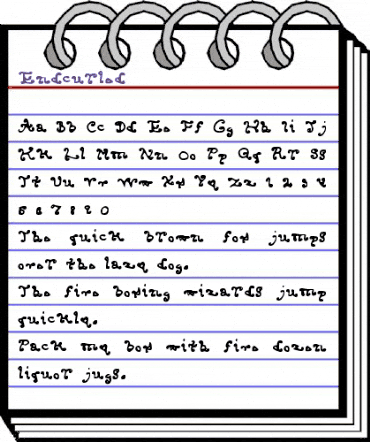 Endcurled
Aa Bb Cc Dd Ee Ff Gg Hh Ii Jj
Kk Ll Mm Nn Oo Pp Qq Rr Ss
Tt Uu Vv Ww Xx Yy Zz 1 2 3 4
5 6 7 8 9 0
The quick brown fox jumps
over the lazy dog.
The five boxing wizards jump
quickly.
Pack my box with five dozen
liquor jugs.